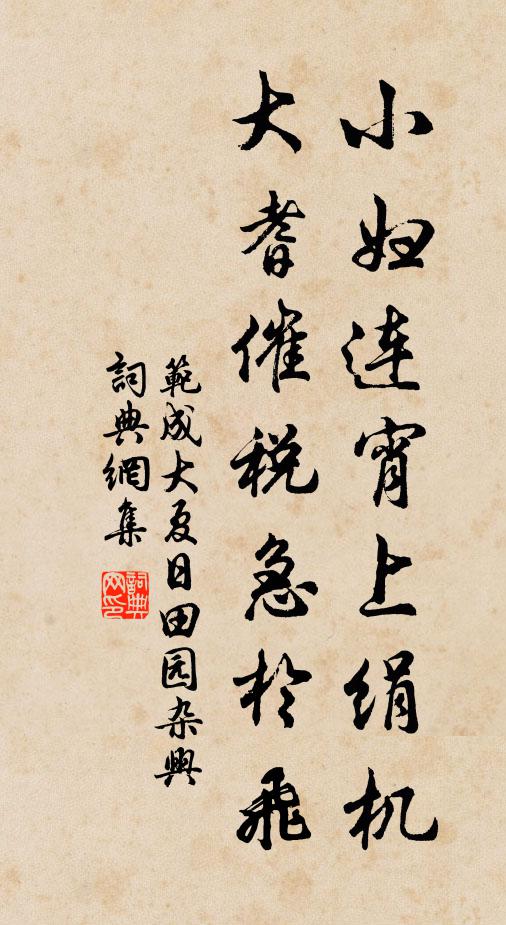 小妇连宵上绢机
大耆催税急於飛
範成大夏日田园杂興
詞典網集
詞典网印